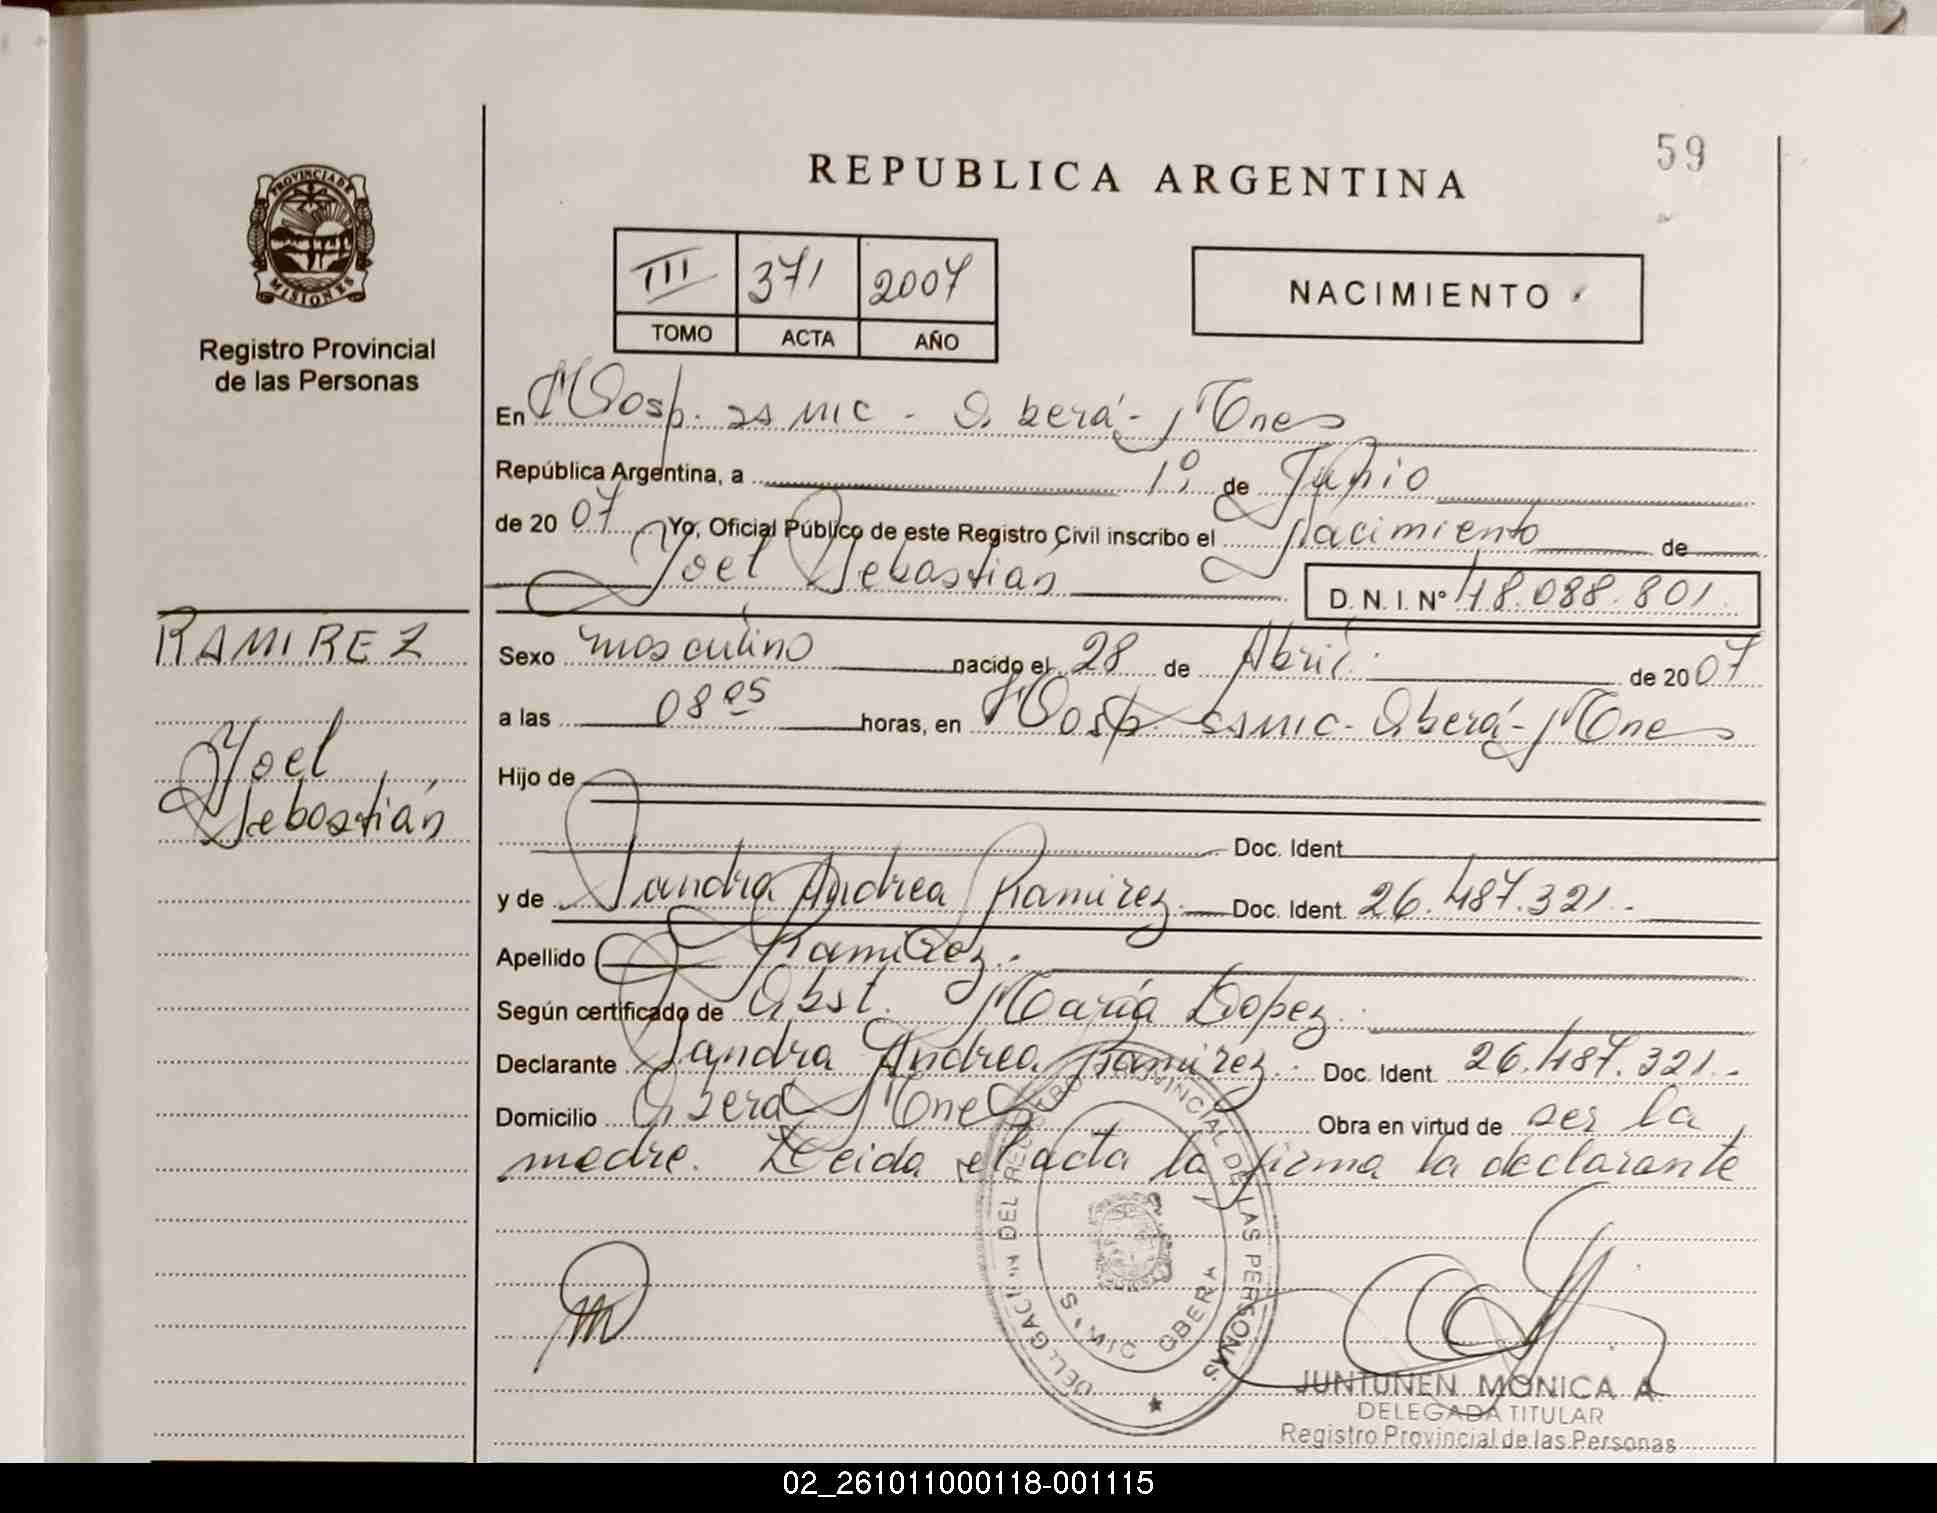 59
REPUBLICA ARGENTINA
PROVINCIA DE
MISIONES
Registro Provincial
de las Personas
III 371 2007
TOMO ACTA AÑO
NACIMIENTO
En Hosp. SAMIC - Oberá - Mnes
República Argentina, a 1º de Junio
de 2007 Yo, Oficial Público de este Registro Civil inscribo el Nacimiento de
Joel Sebastián
D. N. I. Nº 48.088.801.
RAMIREZ
Joel
Sebastián
Sexo masculino nacido el 28 de Abril de 2007
a las 08 05 horas, en Hosp SAMIC - Oberá - Mnes
Hijo de
Doc. Ident.
y de Sandra Andrea Ramirez. Doc. Ident. 26.487.321.-
Apellido Ramirez.
Según certificado de Obst. María Lopez.
Declarante Sandra Andrea Ramirez. Doc. Ident. 26.487.321.-
Domicilio Oberá Mnes Obra en virtud de ser la
madre. Leida el acta la firma la declarante
DELEGACION DEL REGISTRO PROVINCIAL DE LAS PERSONAS
OBERA
JUNTUNEN MONICA A.
DELEGADA TITULAR
Registro Provincial de las Personas
02_261011000118-001115